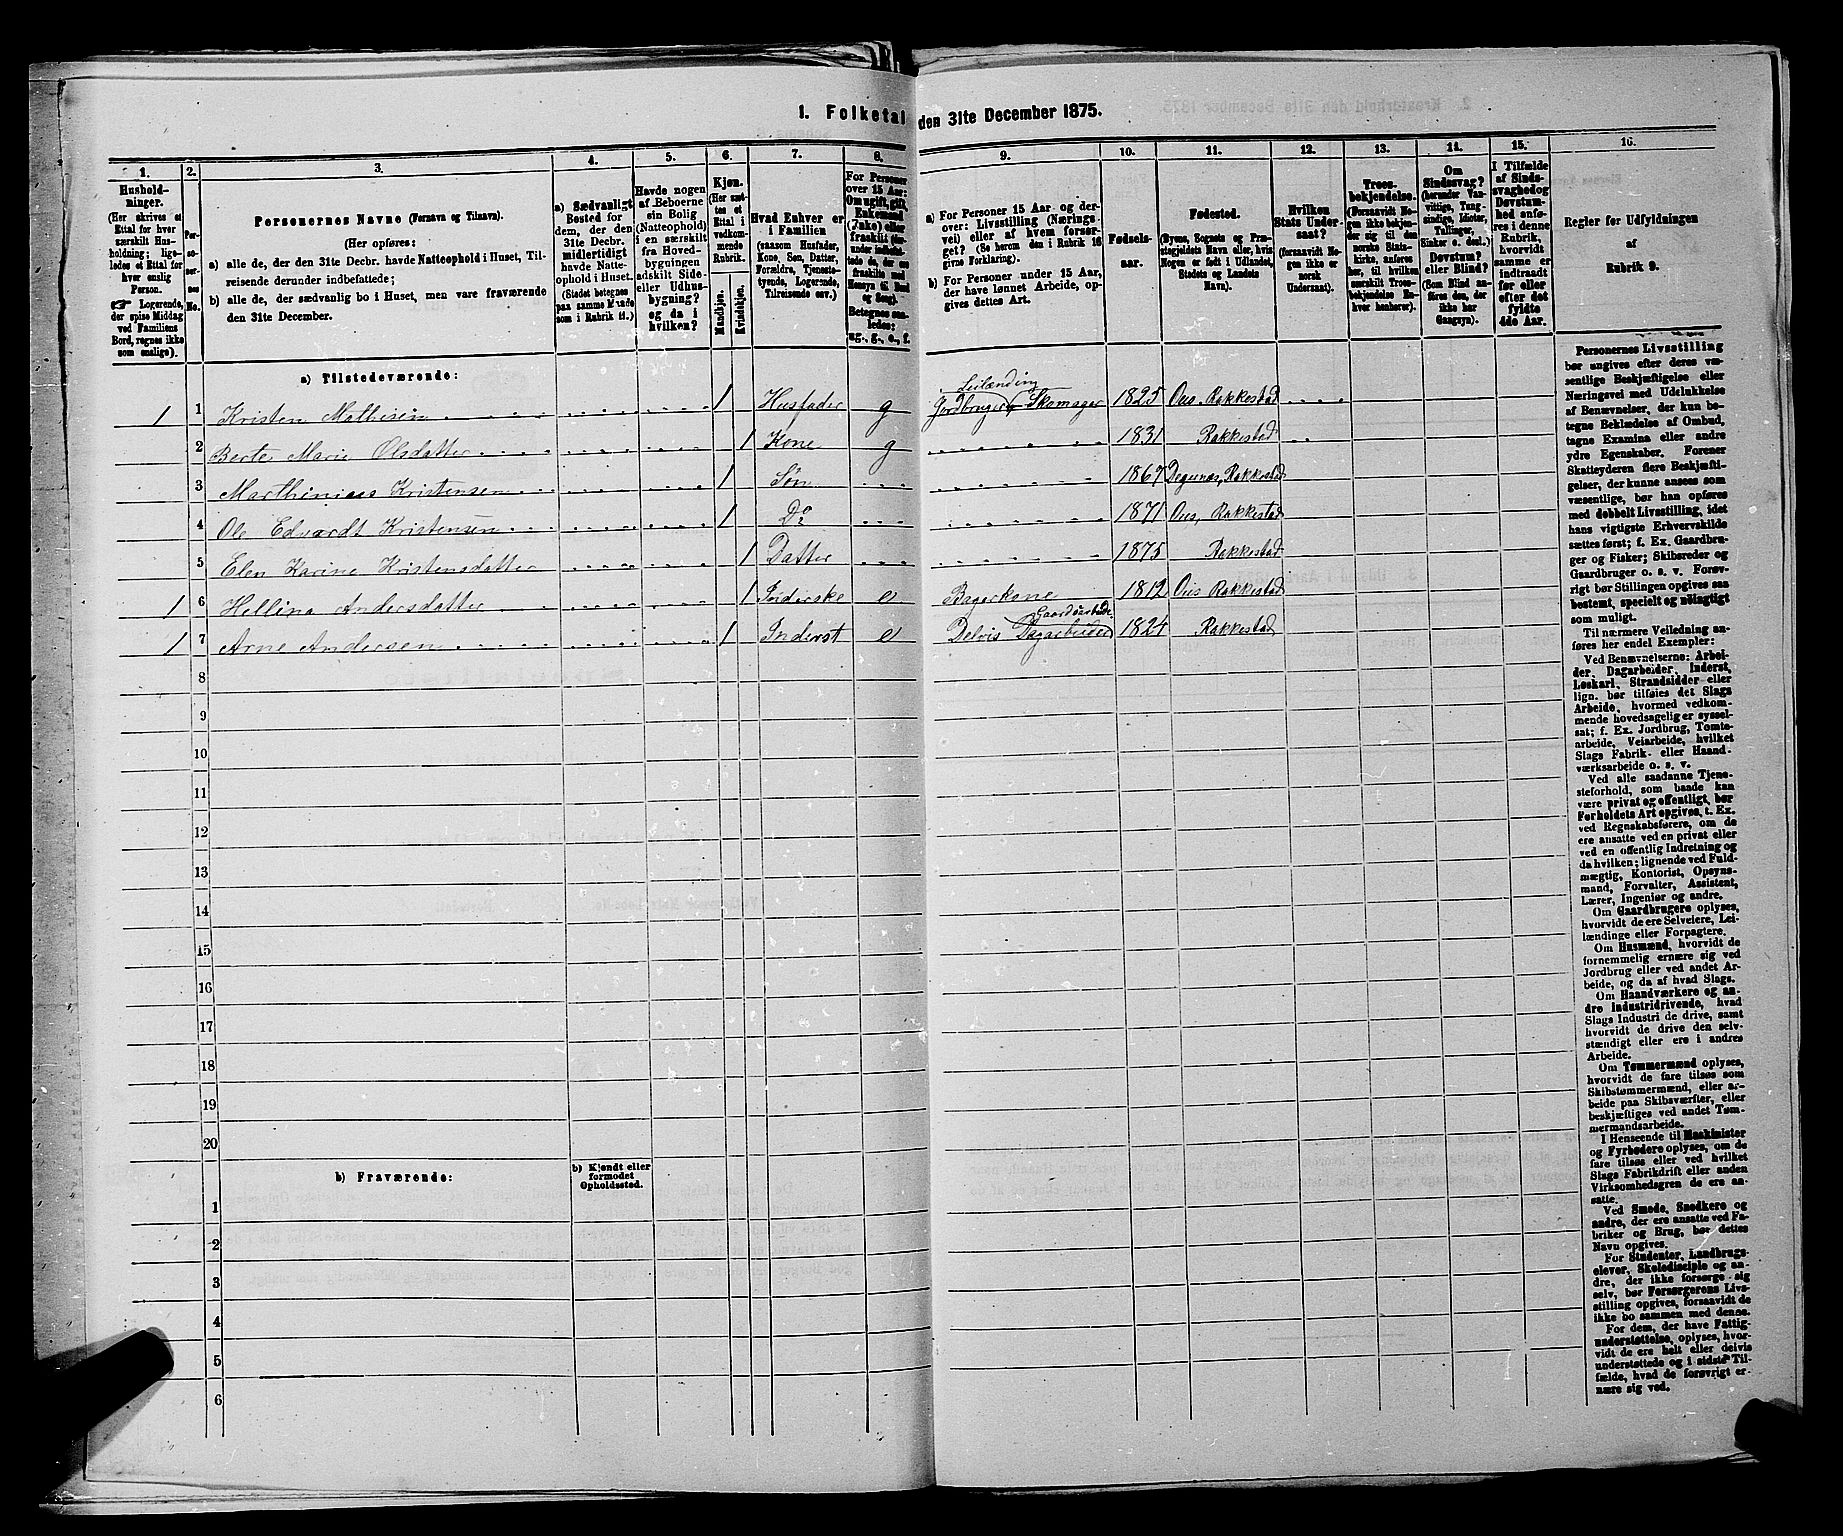 1. Folketal den 31te December 1875.
1. 2. 3. 4. 5. 6. 7. 8. 9. 10. 11. 12. 13. 14. 15. 16.
Hushold-
ninger.
(Her skrives et
Ettal for hver
særskilt Hus-
holdning; lige-
ledes et Ettal for
hver enslig
Person.
☞ Logerende,
der spise Middag
ved Familiens
Bord, regnes ikke
som enslige).
Per-
so-
ner-
nes
No.
Personernes Navne (Fornavn og Tilnavn).
(Her opføres:
a) alle de, der den 31te Decbr. havde Natteophold i Huset, Til-
reisende derunder indbefattede;
b) alle de, der sædvanlig bo i Huset, men vare fraværende
den 31te December.
a) Sædvanligt
Bosted for
dem, der den
31te Decbr.
midlertidigt
havde Natte-
ophold i Huset.
(Stedet betegnes
paa samme Maade
som i Rubrik 11.)
Havde nogen
af Beboerne
sin Bolig
(Natteophold)
i en særskilt
fra Hoved-
bygningen
adskilt Side-
eller Udhus-
bygning?
og da i
hvilken?
Kjøn.
(Her sæt-
tes et
Ettal i
vedkom-
mende
Rubrik.
Mandkjøn.
Kvindekjøn.
Hvad Enhver er
i Familien
(saasom Husfader,
Kone, Søn, Datter,
Forældre, Tjeneste-
tyende, Logerende,
Tilreisende osv.)
For Personer
over 15 Aar:
Om ugift, gift,
Enkemand
(Enke) eller
fraskilt
Betegnes saa-
ledes:
ug., g., e., f.
a) For Personer 15 Aar og der-
over: Livsstilling (Nærings-
vei) eller af hvem forsør-
get? (Se herom den i Rubrik 16
givne Forklaring).
b) For Personer under 15 Aar,
der have lønnet Arbeide, op-
gives dettes Art.
Fødsels-
aar.
Fødested.
(Byens, Sognets og Præ-
stegjeldets Navn eller, hvis
Nogen er født i Udlandet,
Stedets og Landets
Navn).
Hvilken
Stats Under-
saat?
(forsaavidt No-
gen ikke er
norsk
Undersaat).
Troes-
bekjendelse.
(Forsaavidt No-
gen ikke bekjen-
der sig til den
norske Stats-
kirke, anføres
her, til hvilken
særskilt Troes-
bekjendelse En-
hver henhører).
Om
Sindssvag?
(herunder Van-
vittige, Tung-
sindige, Idioter,
Tullinger,
Sinker o. desl.)
Døvstum?
eller Blind?
(Som Blind an-
føres den, der
ikke har
Gangsyn).
I Tilfælde
af Sinds-
svaghed og
Døvstum-
hed anfø-
res i denne
Rubrik,
hvorvidt
samme er
indtraadt
før eller
efter det
fyldte
4de Aar.
Regler for Udfyldningen
af
Rubrik 9.
a) Tilstedeværende:
1 1 Kristen Mathisen 1 Husfader g Leilænding Jordbruger Skomager 1825 Ous. Rakkestad
2 Berte Marie Olsdatter 1 Kone g 1831 Rakkestad
3 Marthinius Kristensen 1 Søn 1867 Degernæs, Rakkestad
4 Ole Edvardt Kristensen 1 Do 1871 Ous, Rakkestad
5 Elen Karine Kristensdatter 1 Datter 1875 Rakkestad
1 6 Hellina Andersdatter 1 Inderske e Bagerkone 1812 Ous Rakkestad
1 7 Arne Andersen 1 Inderst e Delvis Gaardsarbeide Dagarbeider 1824 Rakkestad
8
9
10
11
12
13
14
15
16
17
18
19
20
b) Fraværende:
b) Kjendt eller
formodet
Opholdssted.
1
2
3
4
5
6
Personernes Livsstilling
bør angives efter deres væ-
sentlige Beskjæftigelse eller
Næringsvei med Udelukkelse
af Benævnelser, der kun be-
tegne Beklædelse af Ombud,
tagne Examina eller andre
ydre Egenskaber. Forener
Skatteyderen flere Beskjæfti-
gelser, der kunne ansees som
væsentlige, bør han opføres
med dobbelt Livsstilling, idet
hans vigtigste Erhvervskilde
sættes først; f. Ex. Gaardbru-
ger og Fisker; Skibsreder og
Gaardbruger o. s. v. Forøv-
rigt bør Stillingen opgives saa
bestemt, specielt og nøiagtigt
som muligt.
Til nærmere Veiledning an-
føres her endel Exempler:
Ved Benævnelserne: Arbei-
der, Dagarbeider, Inderst,
Løskarl, Strandsidder eller
lign. bør tilføies det Slags
Arbeide, hvormed vedkom-
mende hovedsagelig er syssel-
sat; f. Ex. Jordbrug, Tømte-
arbeide, Veiarbeide, hvilket
Slags Fabrik- eller Haand-
værksarbeide o. s. v.
Ved alle saadanne Tjene-
steforhold, som baade kan
være privat og offentligt, bør
Forholdets Art opgives, t. Ex.
ved Regnskabsførere, om de
ere ansatte ved en privat eller
ved en offentlig Indretning og
da hvilken; lignende ved Fuld-
mægtig, Kontorist, Opsyns-
mand, Forvalter, Assistent,
Lærer, Ingeniør og andre.
Om Gaardbrugere oplyses,
hvorvidt de ere Selveiere, Lei-
lændinge eller Forpagtere.
Om Husmænd, hvorvidt de
fornemmelig ernære sig ved
Jordbrug eller ved andet Ar-
beide, og da af hvad Slags.
Om Haandværkere og an-
dre Industridrivende, hvad
Slags Industri de drive, samt
hvorvidt de drive den selv-
stændigt eller ere i andres
Arbeide.
Om Tømmermænd oplyses,
hvorvidt de fare tilsøs som
Skibstømmermænd, eller ar-
beide paa Skibsværfter, eller
beskjæftiges ved andet Tøm-
mermandsarbeide.
I Henseende til Maskinister
og Fyrbødere oplyses, om de
fare tilsøs eller ved hvilket
Slags Fabrikdrift eller anden
Virksomhedsgren de ere an-
satte.
Ved Smede, Snedkere og
andre, der ere ansatte ved Fa-
briker og Brug, bør dettes
Navn opgives.
For Studenter, Landbrugs-
elever, Skoledisciple og an-
dre, der ikke forsørge sig
selv, bør Forsørgerens Livs-
stilling opgives, forsaavidt de
ikke bo sammen med denne.
For dem, der have Fattig-
understøttelse, oplyses, hvor-
vidt de ere helt eller delvis
understøttede og i sidste Til-
fælde, hvad de forøvrigt er-
nære sig ved.